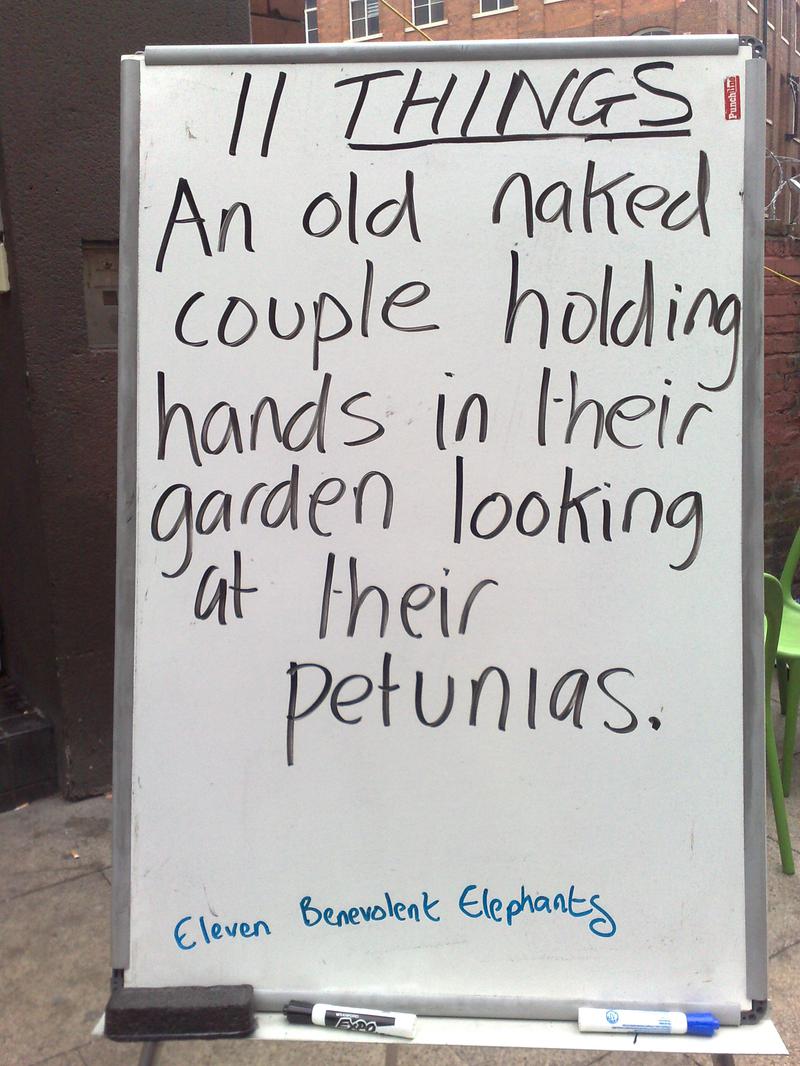 11 THINGS
Punchline
An old naked
couple holding
hands in their
garden looking
at their
petunias.
Eleven Benevolent Elephants
EXPO